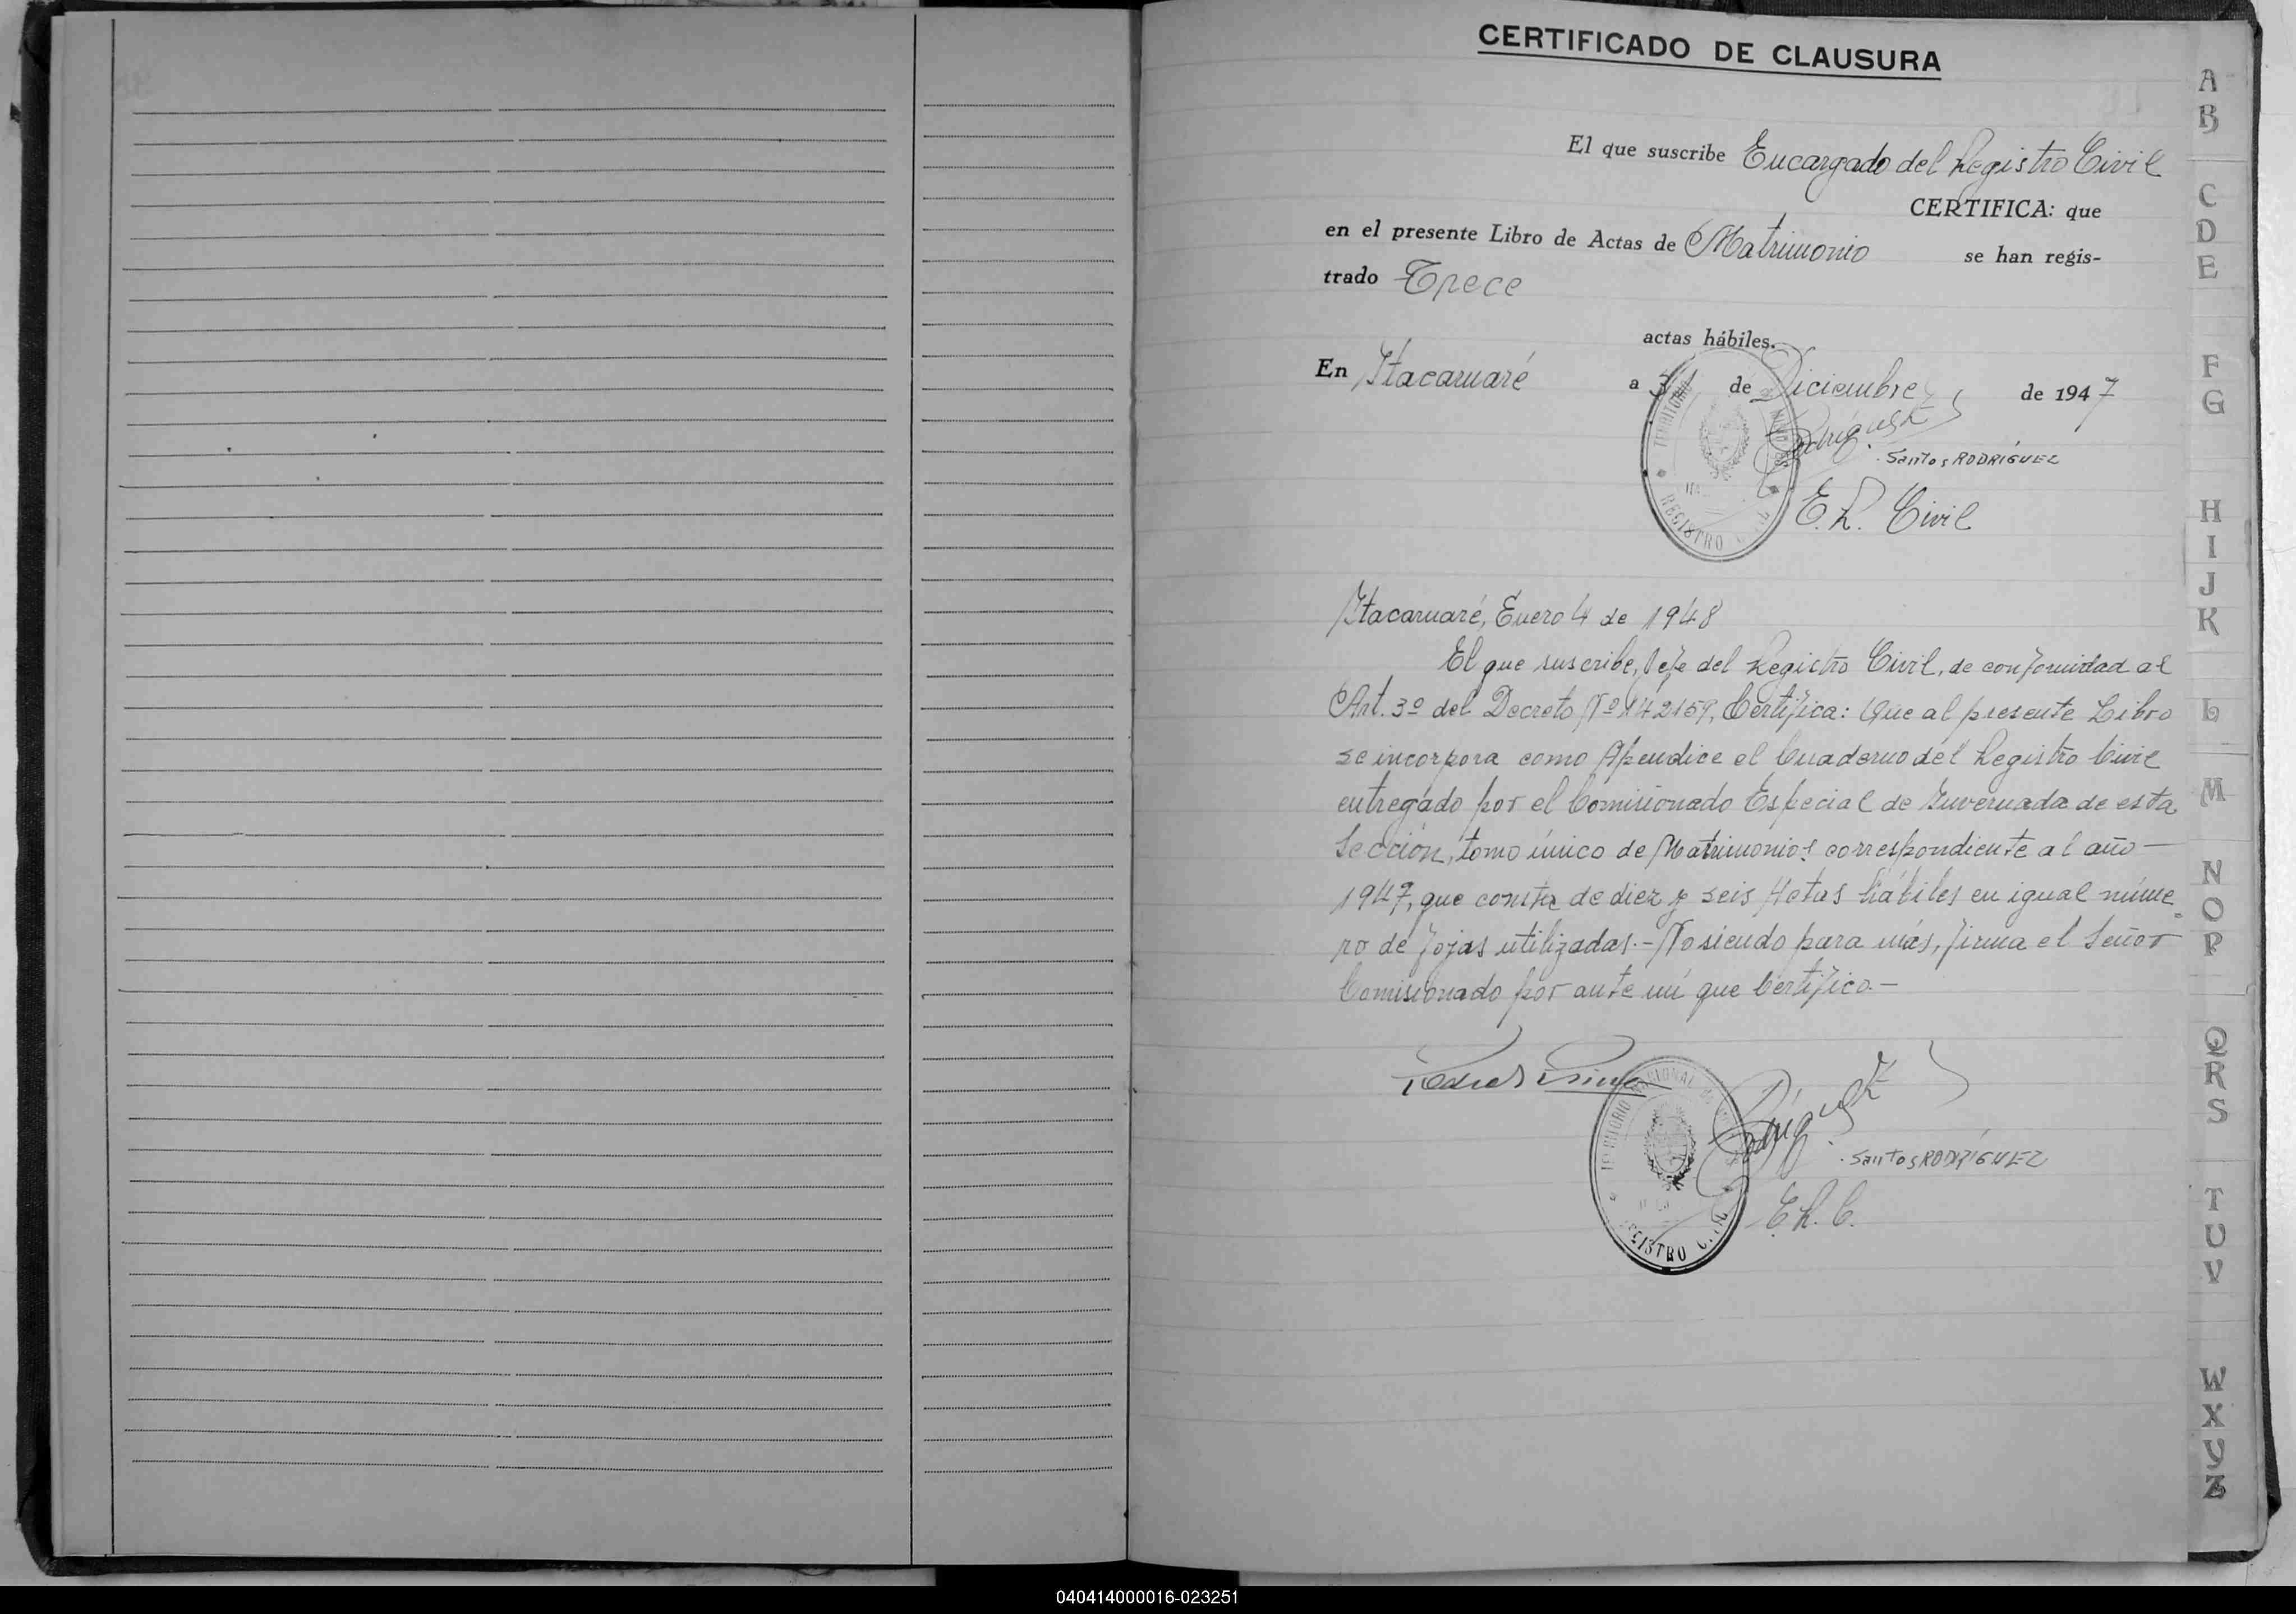 CERTIFICADO DE CLAUSURA
El que suscribe Encargado del Registro Civil
CERTIFICA: que
en el presente Libro de Actas de Matrimonio se han regis-
trado Trece
actas hábiles.
En Itacaruaré a 31 de Diciembre de 1947
Santos RODRÍGUEZ
E. R. Civil
TERRITORIO
REGISTRO
Itacaruaré, Enero 4 de 1948
El que suscribe, Jefe del Registro Civil, de conformidad al
Art. 3º del Decreto Nº 142159, Certifica: Que al presente Libro
se incorpora como Apendice el Cuaderno del Registro Civil
entregado por el Comisionado Especial de Guvernada de esta
Sección, tomo único de Matrimonios correspondiente al año—
1947, que consta de diez y seis Actas hábiles en igual núme-
ro de fojas utilizadas.- No siendo para más, firma el Señor
Comisionado por ante mí que Certifico.—
TERRITORIO NACIONAL
REGISTRO CIVIL
Santos RODRÍGUEZ
E. R. C.
A
B
C
D
E
F
G
H
I
J
K
L
M
N
O
P
Q
R
S
T
U
V
W
X
Y
Z
040414000016-023251